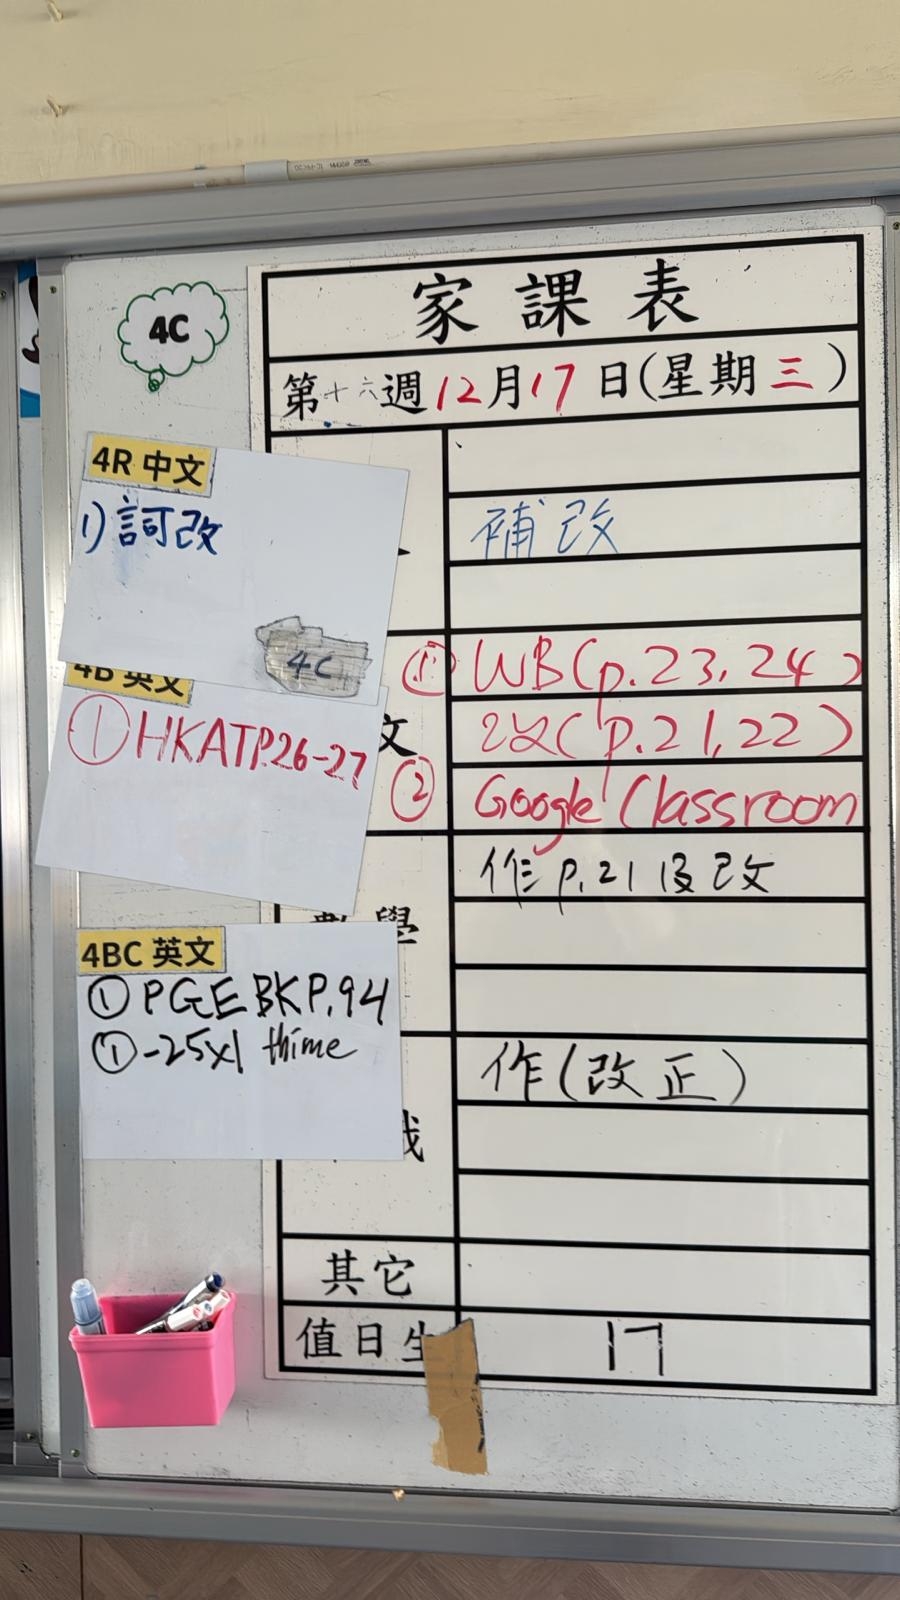 4C
家課表
第十六週12月17日(星期三)
4R 中文
1) 訶改
4C
補改
4B 英文
① HKATP.26-27
文
① WB(p.23,24)
2改(p.21,22)
② Google Classroom
4BC 英文
① PGE BKP.94
① -25x1 thime
數學
作 p.21 及改
作(改正)
其它
值日生
17